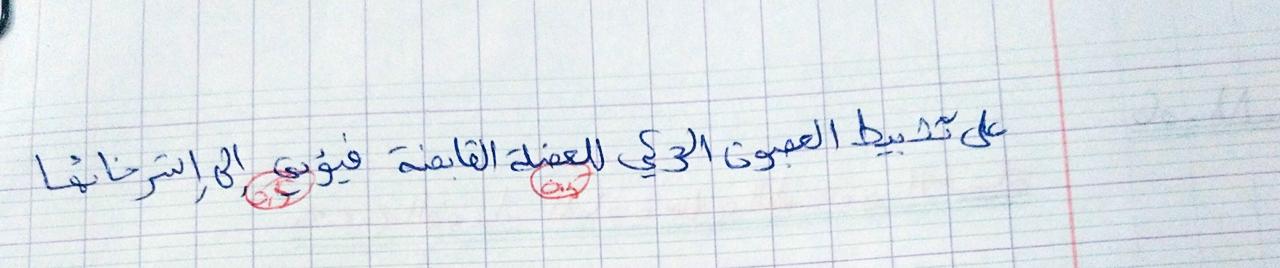 على تثبيط العصبون الحركي للعضلة القابضة فيؤدي إلى إسترخائها
0,5 0,5